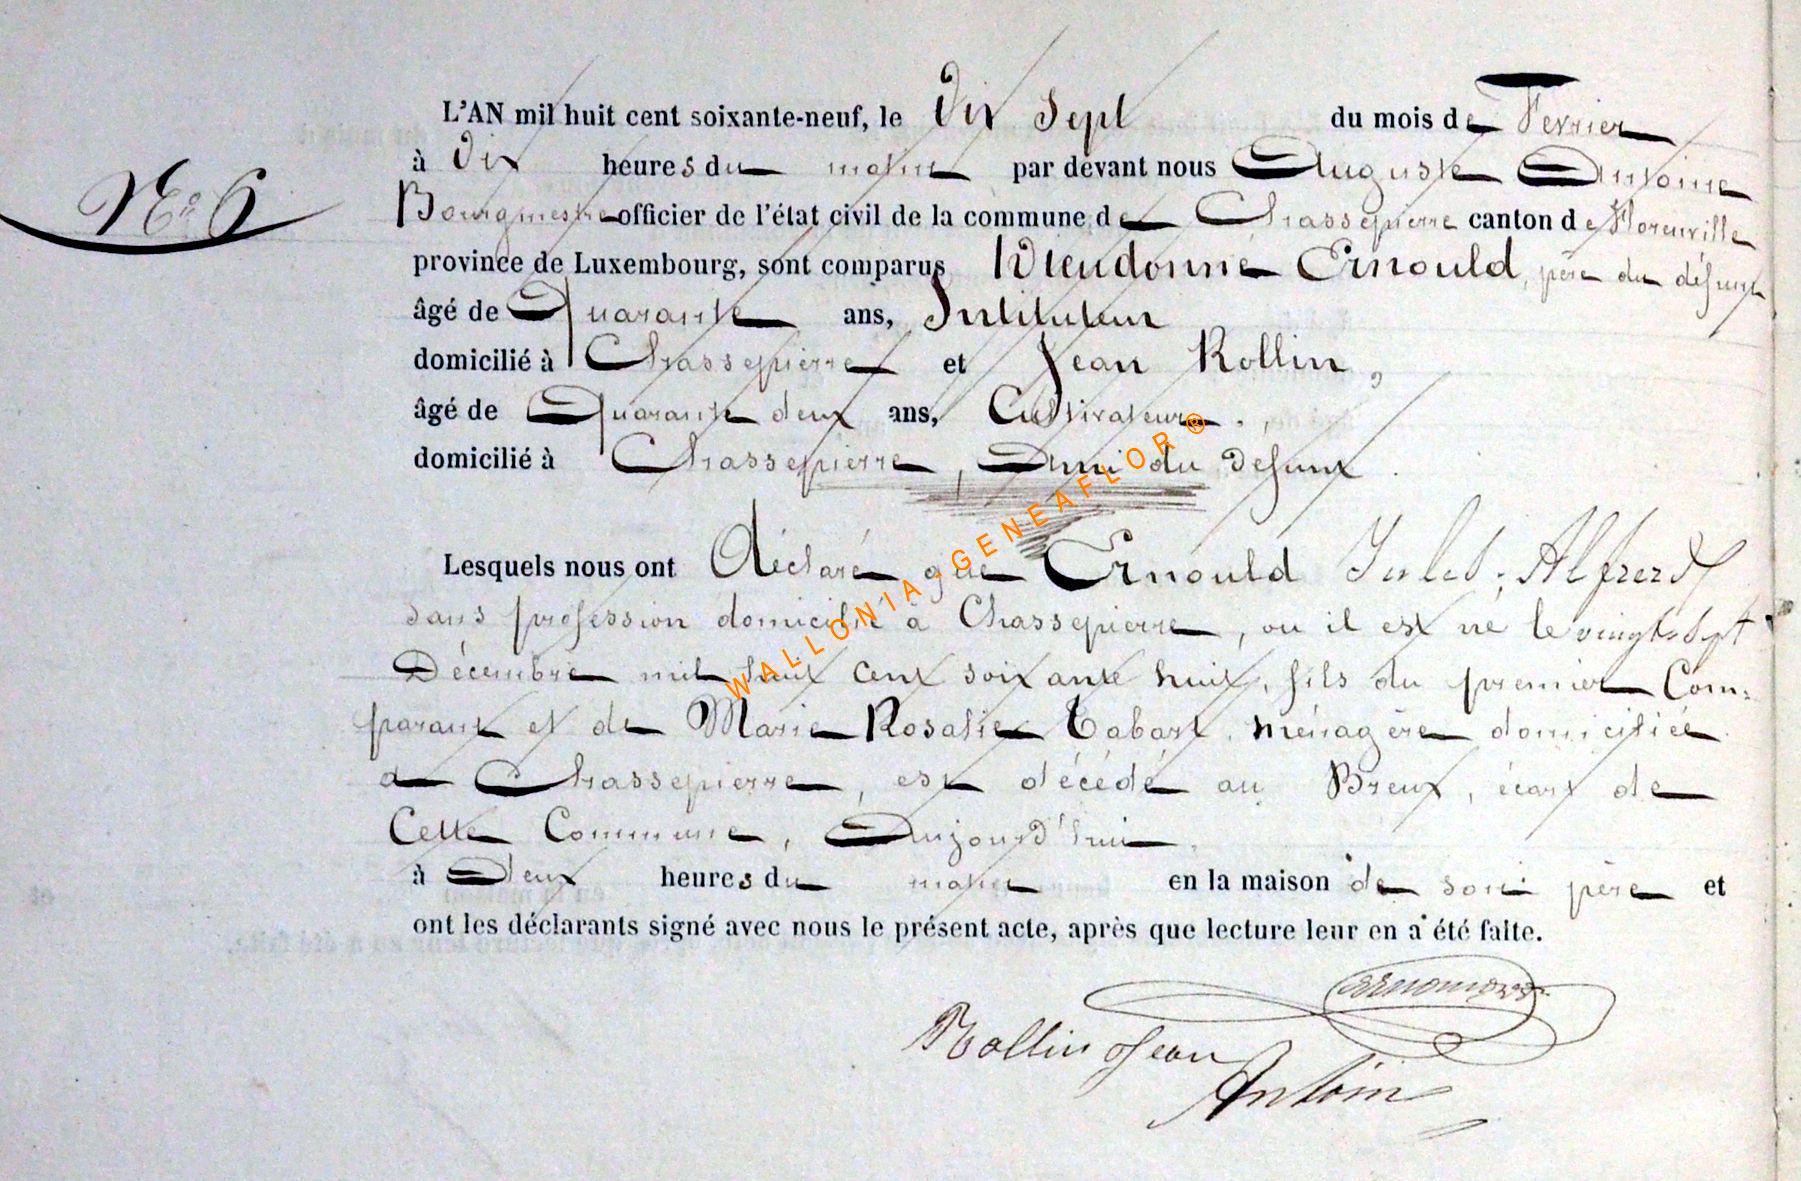 L'AN mil huit cent soixante-neuf, le Dix Sept du mois de Fevrier
à Dix heures du matin par devant nous Auguste Antoine
N° 6
Bourgmestre officier de l'état civil de la commune de Chassepierre canton de Florenville
province de Luxembourg, sont comparus Dieudonné Ernould, père du défunt
âgé de Quarante ans, Instituteur
domicilié à Chassepierre et Jean Rollin,
âgé de Quarante deux ans, Cultivateur,
domicilié à Chassepierre, Ami du défunt
Lesquels nous ont Déclaré que Ernould Jules, Alfred
sans profession domicilié à Chassepierre, ou il est né le vingt-sept
Décembre mil huit cent soixante huit, fils du premier Com=
parant et de Marie Rosalie Tabart, ménagère domiciliée
à Chassepierre, est décédé au Breux, écart de
Cette Commune, Aujourd'hui
à Deux heures du matin en la maison de son père et
ont les déclarants signé avec nous le présent acte, après que lecture leur en a été faite.
Rollin Jean
Antoin
WALLONIAGGENEAFLOR ®